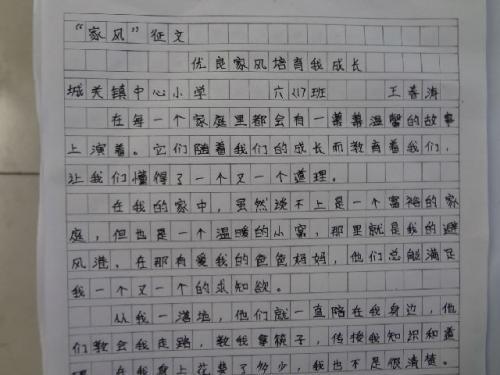 “家风”征文
优良家风培育我成长
城关镇中心小学 六(1)班 王春涛
在每一个家庭里都会有一幕幕温馨的故事
上演着。它们随着我们的成长而教育着我们，
让我们懂得了一个又一个道理。
在我的家中，虽然谈不上是一个富裕的家
庭，但也是一个温暖的小窝，那里就是我的避
风港，在那有爱我的爸爸妈妈，他们总能满足
我一个又一个的求知欲。
从我一落地，他们就一直陪在我身边，他
们教会我走路，教我拿筷子，传授我知识和道
理。在我身上花费了多少，我也不是很清楚。